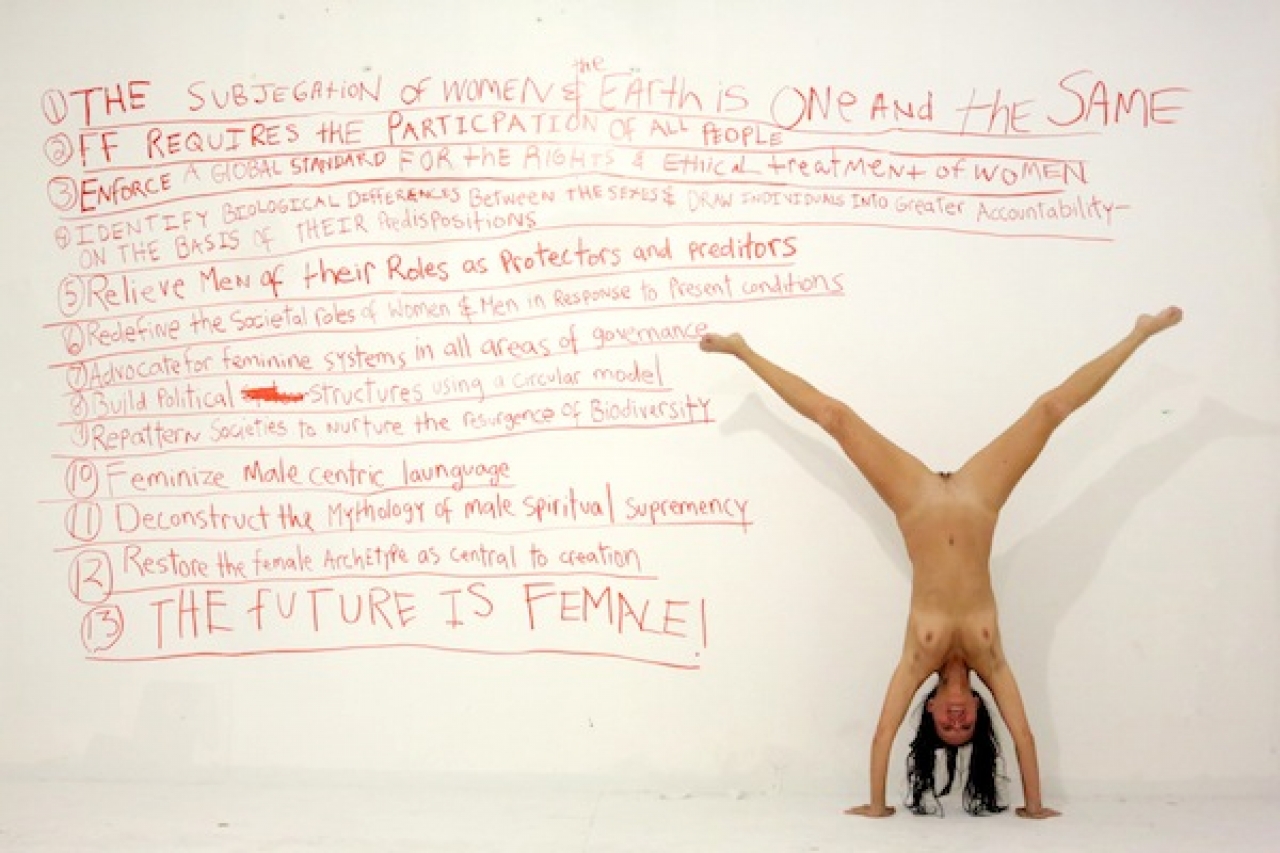 ① THE SUBJEGATION OF WOMEN & the EARth is ONe AND the SAME
② FF REQUIRES tHE PARTICPATION OF ALL PEOPLE
③ ENFORCE A GLOBAL STANDARD FOR the RIGHTS & Ethical treatMENt of WOMEN
④ IDENTIFY BIOLOGICAL DIFFERENCES Between THE SEXES & DRAW INDIVIDUALS INto Greater Accountability-
ON THE BASIS OF THEIR Predispositions
⑤ Relieve Men of their Roles as Protectors and preditors
⑥ Redefine the Societal roles of Women & Men in Response to Present conditions
⑦ Advocate for feminine systems in all areas of governance
⑧ Build Political structures using a circular model
⑨ Repattern Societies to nurture the resurgence of Biodiversity
⑩ Feminize Male centric launguage
⑪ Deconstruct the Mythology of male spiritual supremency
⑫ Restore the female Archetype as central to creation
⑬ THE fUTURE IS FEMALE!